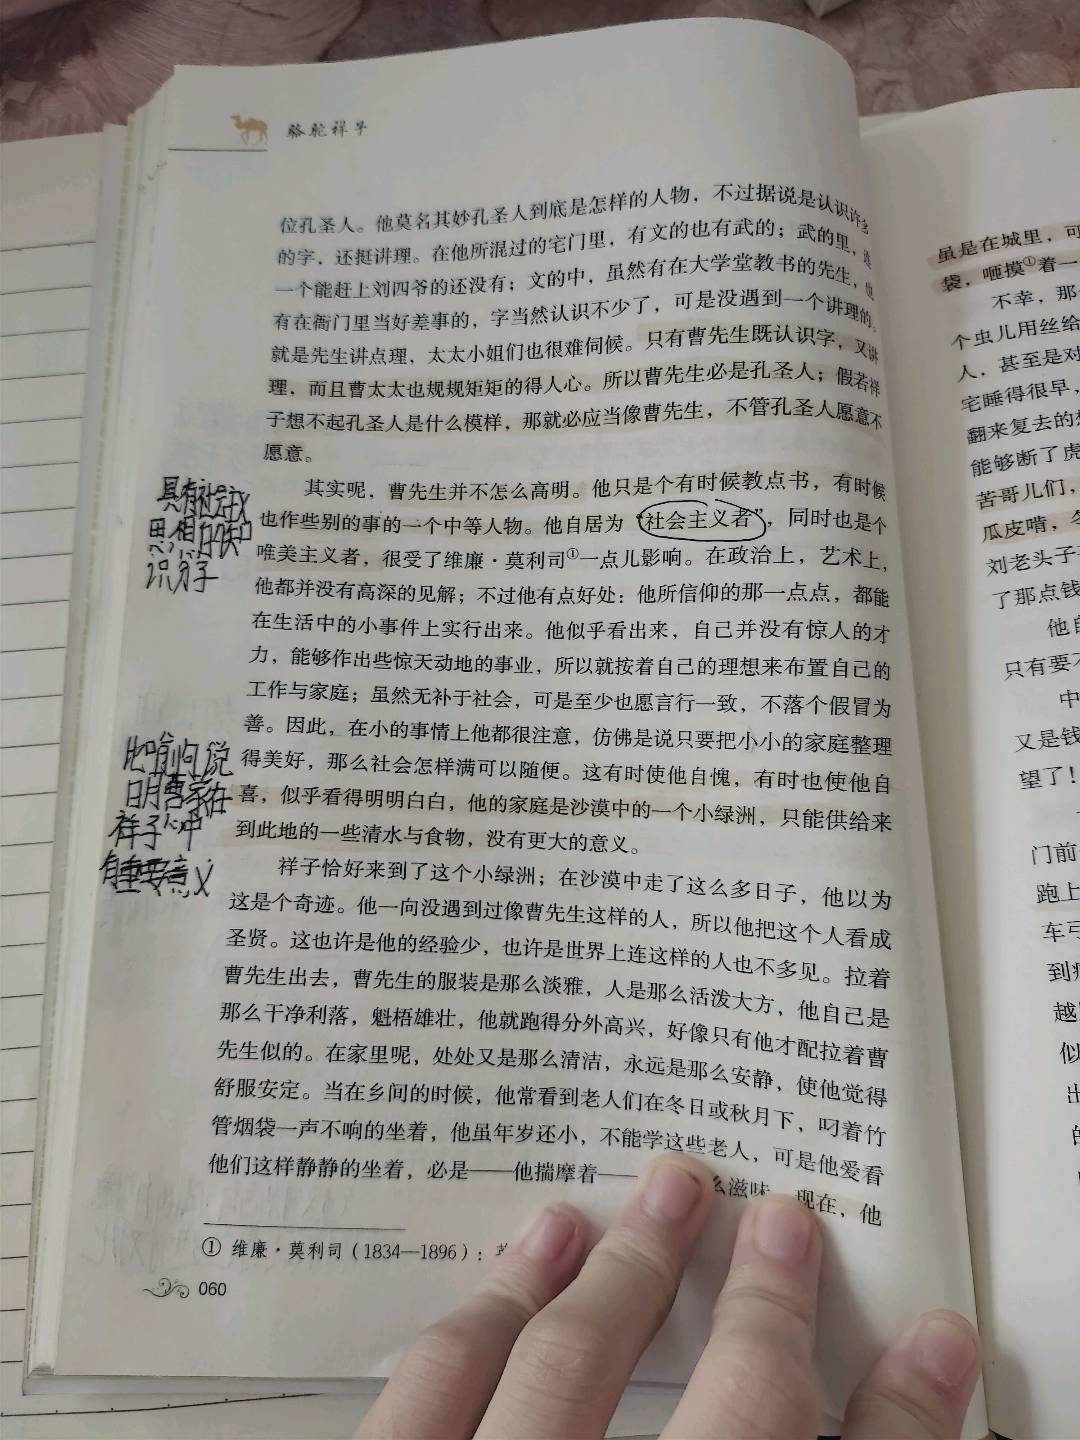 骆驼祥子
位孔圣人。他莫名其妙孔圣人到底是怎样的人物，不过据说是认识许多
的字，还挺讲理。在他所混过的宅门里，有文的也有武的；武的里，连
一个能赶上刘四爷的还没有；文的中，虽然有在大学堂教书的先生，也
有在衙门里当好差事的，字当然认识不少了，可是没遇到一个讲理的。
就是先生讲点理，太太小姐们也很难伺候。只有曹先生既认识字，又讲
理，而且曹太太也规规矩矩的得人心。所以曹先生必是孔圣人；假若祥
子想不起孔圣人是什么模样，那就必应当像曹先生，不管孔圣人愿意不
愿意。
其实呢，曹先生并不怎么高明。他只是个有时候教点书，有时候
也作些别的事的一个中等人物。他自居为“社会主义者”，同时也是个
唯美主义者，很受了维廉·莫利司①一点儿影响。在政治上，艺术上，
他都并没有高深的见解；不过他有点好处：他所信仰的那一点点，都能
在生活中的小事件上实行出来。他似乎看出来，自己并没有惊人的才
力，能够作出些惊天动地的事业，所以就按着自己的理想来布置自己的
工作与家庭；虽然无补于社会，可是至少也愿言行一致，不落个假冒为
善。因此，在小的事情上他都很注意，仿佛是说只要把小小的家庭整理
得美好，那么社会怎样满可以随便。这有时使他自愧，有时也使他自
喜，似乎看得明明白白，他的家庭是沙漠中的一个小绿洲，只能供给来
到此地的一些清水与食物，没有更大的意义。
祥子恰好来到了这个小绿洲；在沙漠中走了这么多日子，他以为
这是个奇迹。他一向没遇到过像曹先生这样的人，所以他把这个人看成
圣贤。这也许是他的经验少，也许是世界上连这样的人也不多见。拉着
曹先生出去，曹先生的服装是那么淡雅，人是那么活泼大方，他自己是
那么干净利落，魁梧雄壮，他就跑得分外高兴，好像只有他才配拉着曹
先生似的。在家里呢，处处又是那么清洁，永远是那么安静，使他觉得
舒服安定。当在乡间的时候，他常看到老人们在冬日或秋月下，叼着竹
管烟袋一声不响的坐着，他虽年岁还小，不能学这些老人，可是他爱看
他们这样静静的坐着，必是——他揣摩着——么滋味。现在，他
① 维廉·莫利司（1834—1896）：
060
具有社会主义
思想的知
识分子
比喻句，说
明曹家在
祥子心中
有重要意义
虽是在城里，可
袋，咂摸①着一
不幸，那
个虫儿用丝给
人，甚至是对
宅睡得很早，
翻来复去的
能够断了虎
苦哥儿们，
瓜皮啃，冬
刘老头子
了那点钱
他自
只有要不
中
又是钱
望了！
门前
跑上
车弓
到
越
似
出
的